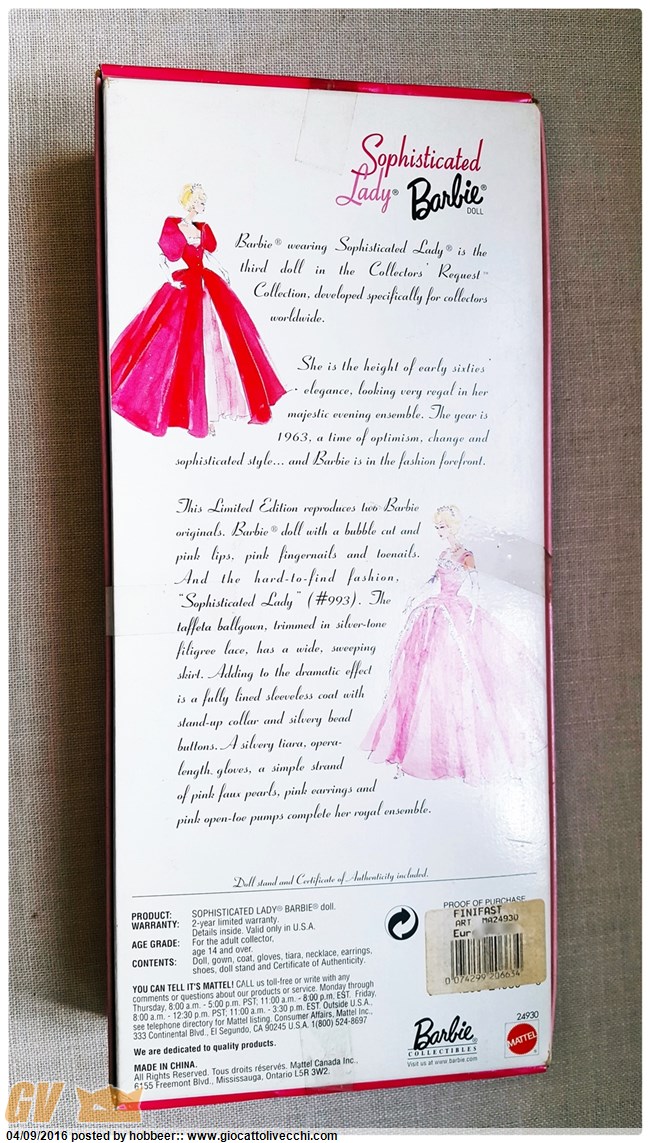 Sophisticated
Lady® Barbie®
DOLL
Barbie® wearing Sophisticated Lady® is the
third doll in the Collectors' Request™
Collection, developed specifically for collectors
worldwide.
She is the height of early sixties
elegance, looking very regal in her
majestic evening ensemble. The year is
1963, a time of optimism, change and
sophisticated style... and Barbie is in the fashion forefront.
This Limited Edition reproduces two Barbie
originals. Barbie® doll with a bubble cut and
pink lips, pink fingernails and toenails.
And the hard-to-find fashion,
"Sophisticated Lady" (#993). The
taffeta ballgown, trimmed in silver-tone
filigree lace, has a wide, sweeping
skirt. Adding to the dramatic effect
is a fully lined sleeveless coat with
stand-up collar and silvery bead
buttons. A silvery tiara, opera-
length gloves, a simple strand
of pink faux pearls, pink earrings and
pink open-toe pumps complete her royal ensemble.
Doll stand and Certificate of Authenticity included.
PRODUCT: SOPHISTICATED LADY® BARBIE® doll.
WARRANTY: 2-year limited warranty.
Details inside. Valid only in U.S.A.
AGE GRADE: For the adult collector,
age 14 and over.
CONTENTS: Doll, gown, coat, gloves, tiara, necklace, earrings,
shoes, doll stand and Certificate of Authenticity.
YOU CAN TELL IT'S MATTEL! CALL us toll-free or write with any
comments or questions about our products or service. Monday through
Thursday, 8:00 a.m. - 5:00 p.m. PST; 11:00 a.m. - 8:00 p.m. EST. Friday,
8:00 a.m. - 12:30 p.m. PST; 11:00 a.m. - 3:30 p.m. EST. Outside U.S.A.,
see telephone directory for Mattel listing. Consumer Affairs, Mattel Inc.,
333 Continental Blvd., El Segundo, CA 90245 U.S.A. 1(800) 524-8697
We are dedicated to quality products.
MADE IN CHINA.
All Rights Reserved. Tous droits réservés. Mattel Canada Inc.,
6155 Freemont Blvd., Mississauga, Ontario L5R 3W2.
PROOF OF PURCHASE
FINIFAST
ART MA24930
Eur
0 074299 206634
24930
Barbie®
COLLECTIBLES
Visit us at www.barbie.com
MATTEL
GV
04/09/2016 posted by hobbeer:: www.giocattolivecchi.com